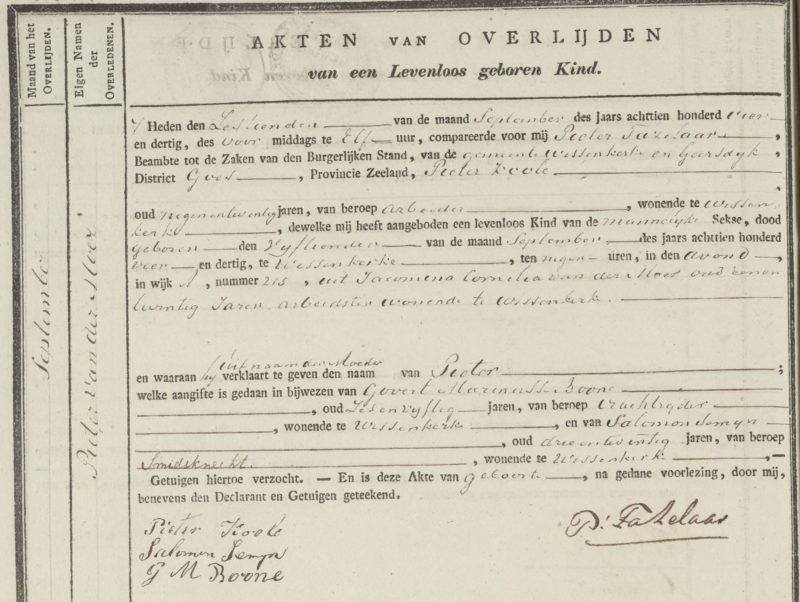 Maand van het
OVERLIJDEN.
Eigen Namen
der
OVERLEDENEN.
AKTEN VAN OVERLIJDEN
van een Levenloos geboren Kind.
September
Pieter van der Moer
Heden den Zestienden van de maand September des jaars achttien honderd vier
en dertig, des voor middags te Elf uur, compareerde voor mij Pieter Fazelaar,
Beambte tot de Zaken van den Burgerlijken Stand, van de gemeente Wissenkerke en Geersdyk,
District Goes, Provincie Zeeland, Pieter Koole
oud negenentwintig jaren, van beroep arbeider, wonende te Wissen-
kerke, dewelke mij heeft aangeboden een levenloos Kind van de mannelyke Sekse, dood
geboren den Vyftienden van de maand September des jaars achttien honderd
vier en dertig, te Wissenkerke, ten negen uren, in den avond,
in wijk A, nummer 215, uit Jacomina Cornelia van der Moer oud eenen
twintig Jaren arbeidster wonende te Wissenkerk.
uit naam der Moeder
en waaraan hy verklaart te geven den naam van Pieter;
welke aangifte is gedaan in bijwezen van Govert Marinus Boone
, oud Zesenvyftig jaren, van beroep Vrachtryder
, wonende te Wissenkerk, en van Salomon Semyn
, oud drieentwintig jaren, van beroep
Smidsknecht, wonende te Wissenkerk,—
Getuigen hiertoe verzocht. — En is deze Akte van Geboorte, na gedane voorlezing, door mij,
benevens den Declarant en Getuigen geteekend.
Pieter Koole
P: Fazelaar
Salomon Semyn
G M Boone